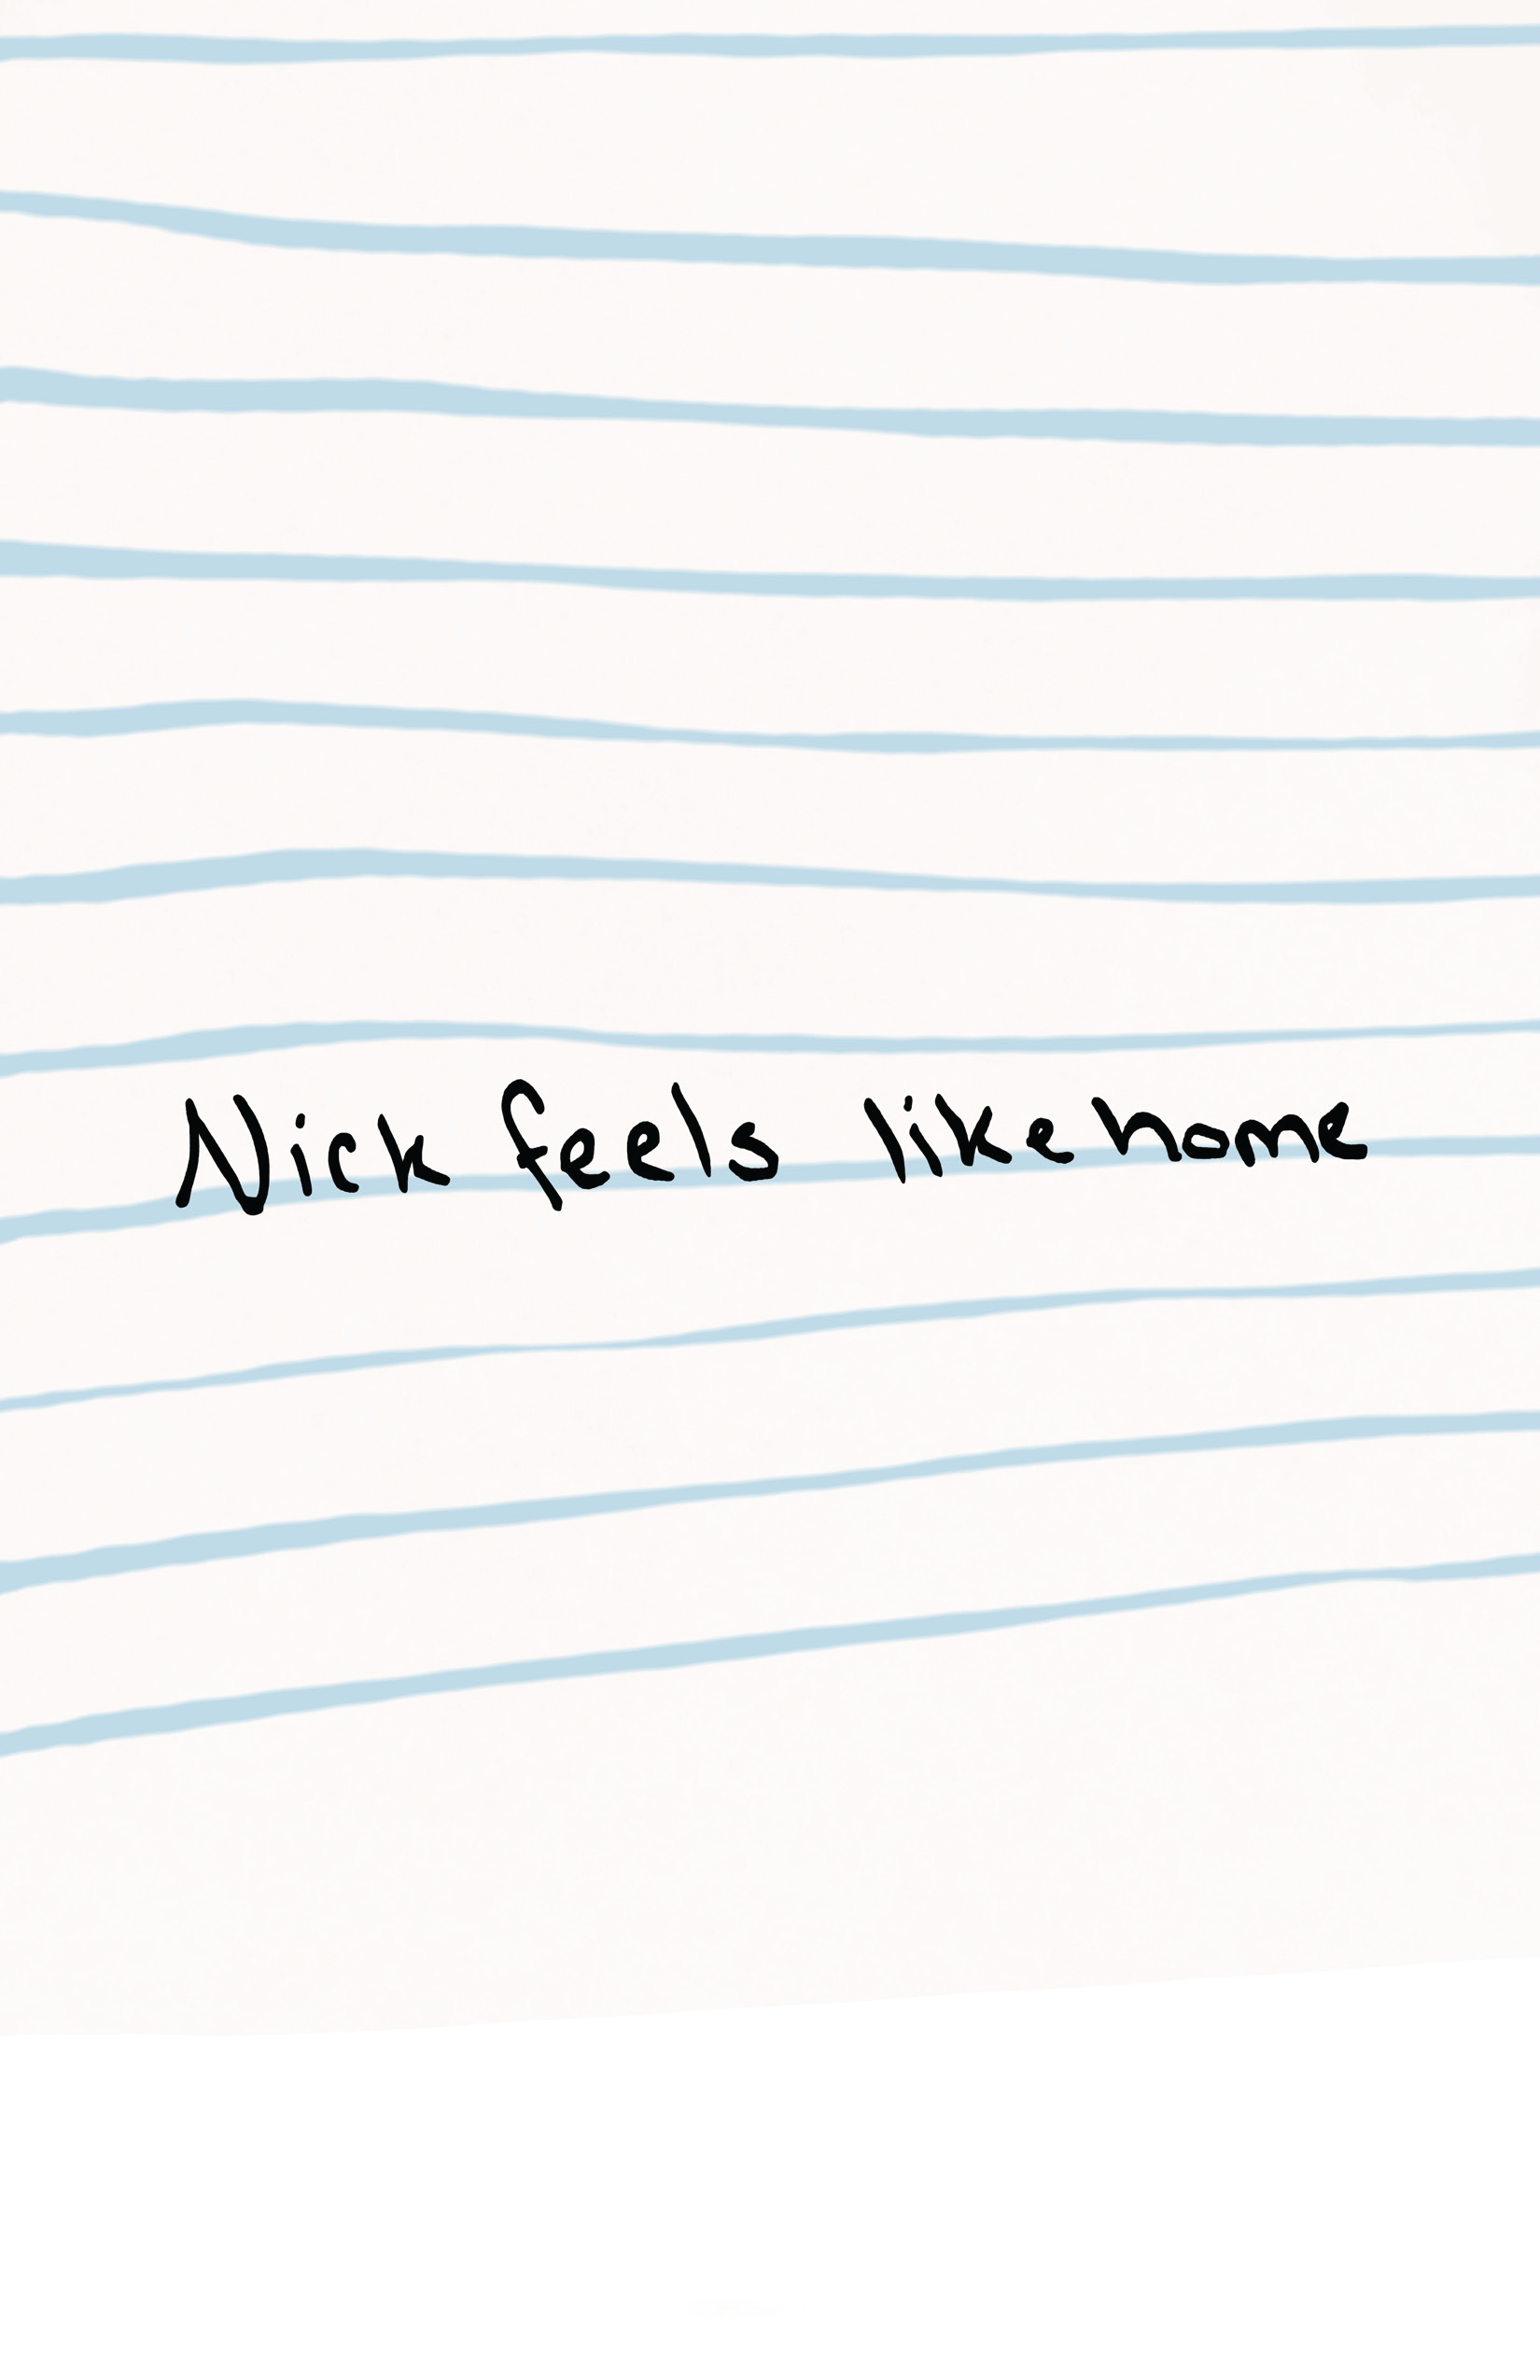 Nick feels like home